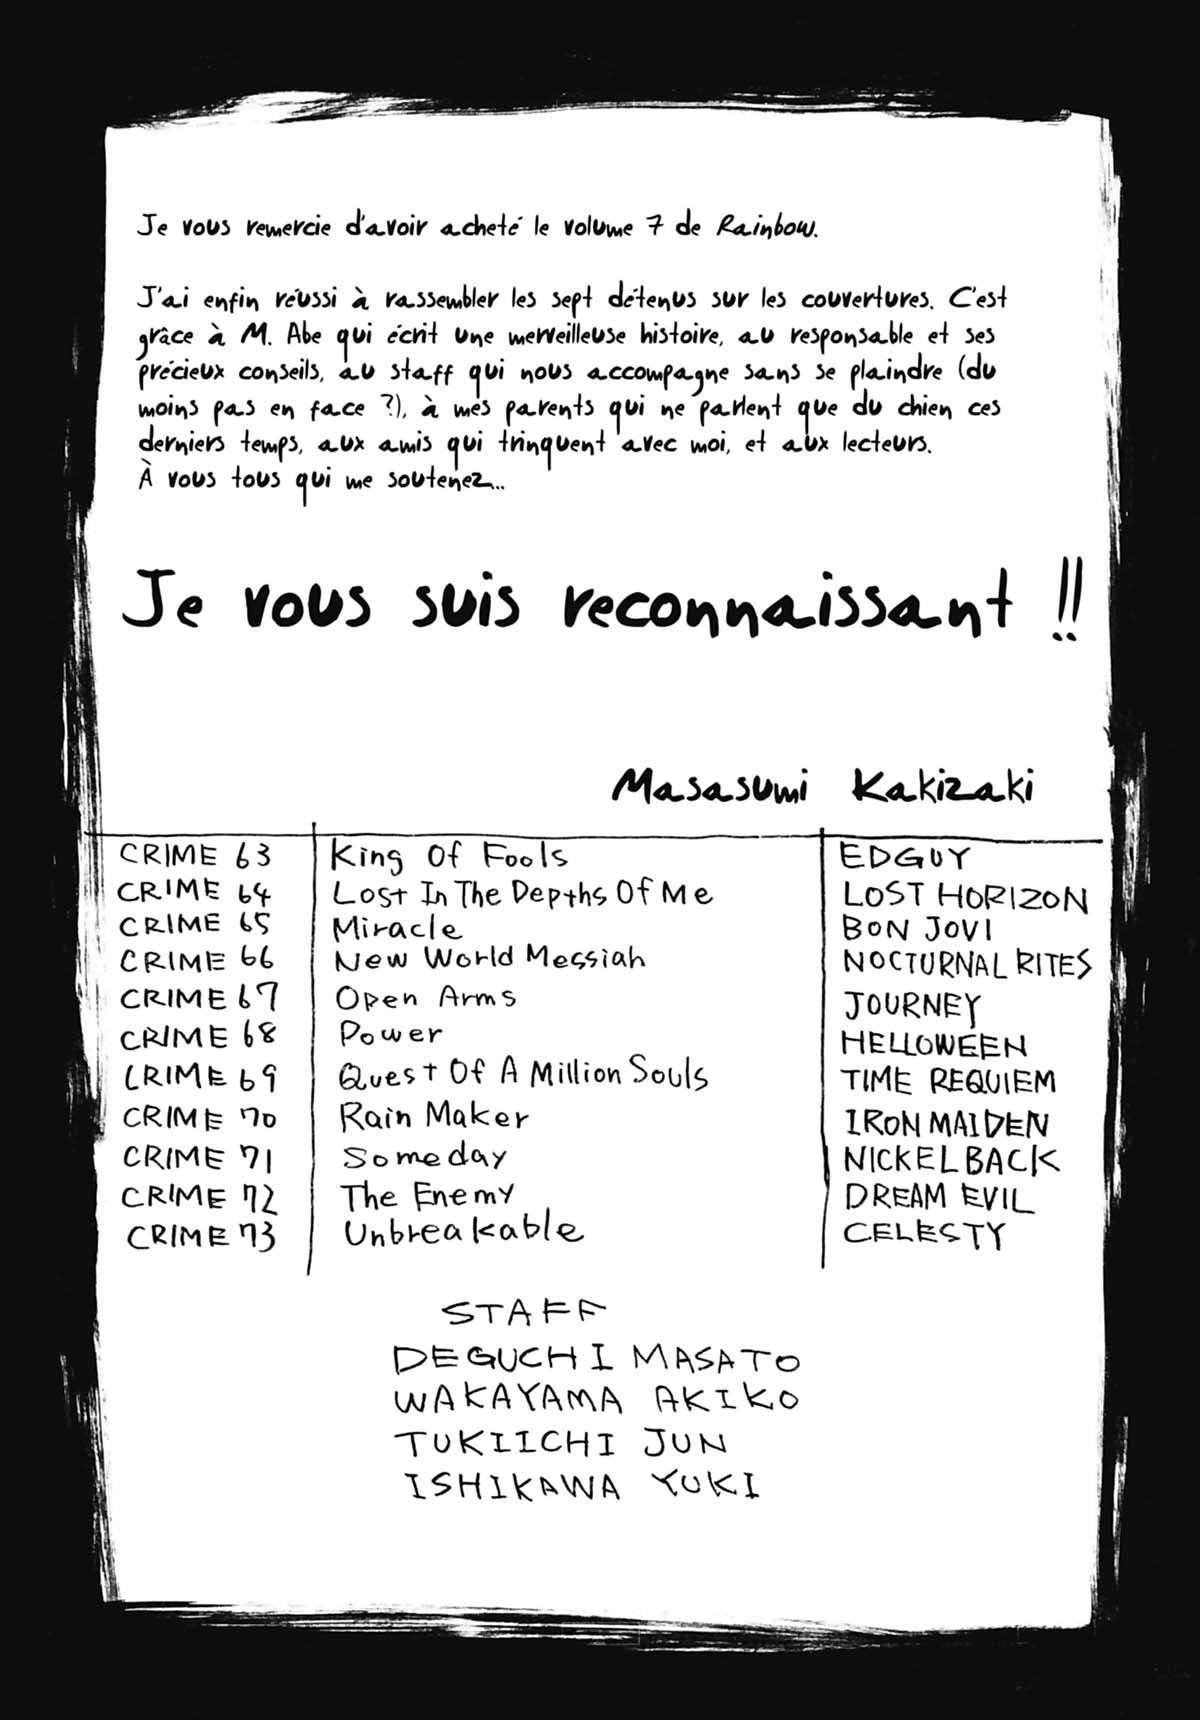 Je vous remercie d'avoir acheté le volume 7 de Rainbow.
J'ai enfin réussi à rassembler les sept détenus sur les couvertures. C'est
grâce à M. Abe qui écrit une merveilleuse histoire, au responsable et ses
précieux conseils, au staff qui nous accompagne sans se plaindre (du
moins pas en face ?), à mes parents qui ne parlent que du chien ces
derniers temps, aux amis qui trinquent avec moi, et aux lecteurs.
À vous tous qui me soutenez...
Je vous suis reconnaissant !!
Masasumi Kakizaki
CRIME 63 King Of Fools EDGUY
CRIME 64 Lost In The Depths Of Me LOST HORIZON
CRIME 65 Miracle BON JOVI
CRIME 66 New World Messiah NOCTURNAL RITES
CRIME 67 Open Arms JOURNEY
CRIME 68 Power HELLOWEEN
CRIME 69 Quest Of A Million Souls TIME REQUIEM
CRIME 70 Rain Maker IRON MAIDEN
CRIME 71 Someday NICKELBACK
CRIME 72 The Enemy DREAM EVIL
CRIME 73 Unbreakable CELESTY
STAFF
DEGUCHI MASATO
WAKAYAMA AKIKO
TUKIICHI JUN
ISHIKAWA YUKI